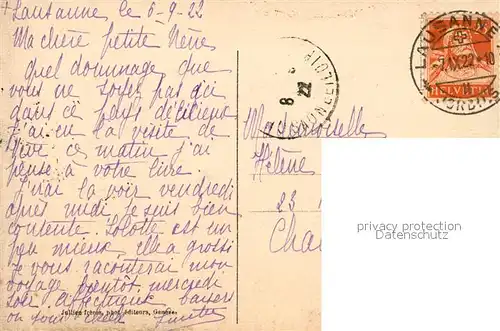 Lausanne le 6-9-22
Ma chère petite Nène
quel dommage que
vous ne soyez pas ici
dans ce pays délicieux
J'ai eu la visite de
ce matin j'ai
pensé à votre
J'irai la voir vendredi
après midi je suis bien
contente. Lolotte est un
peu mieux elle a grossi
Je vous raconterai mon
voyage bientôt mercredi
soir affectueux baisers
Jullien frères, phot. éditeurs, Genève.
LAUSANNE
-7.IX.22.-10
HELVETIA
8
22
Mademoiselle
Hélène
23
Cha
privacy protection
Datenschutz